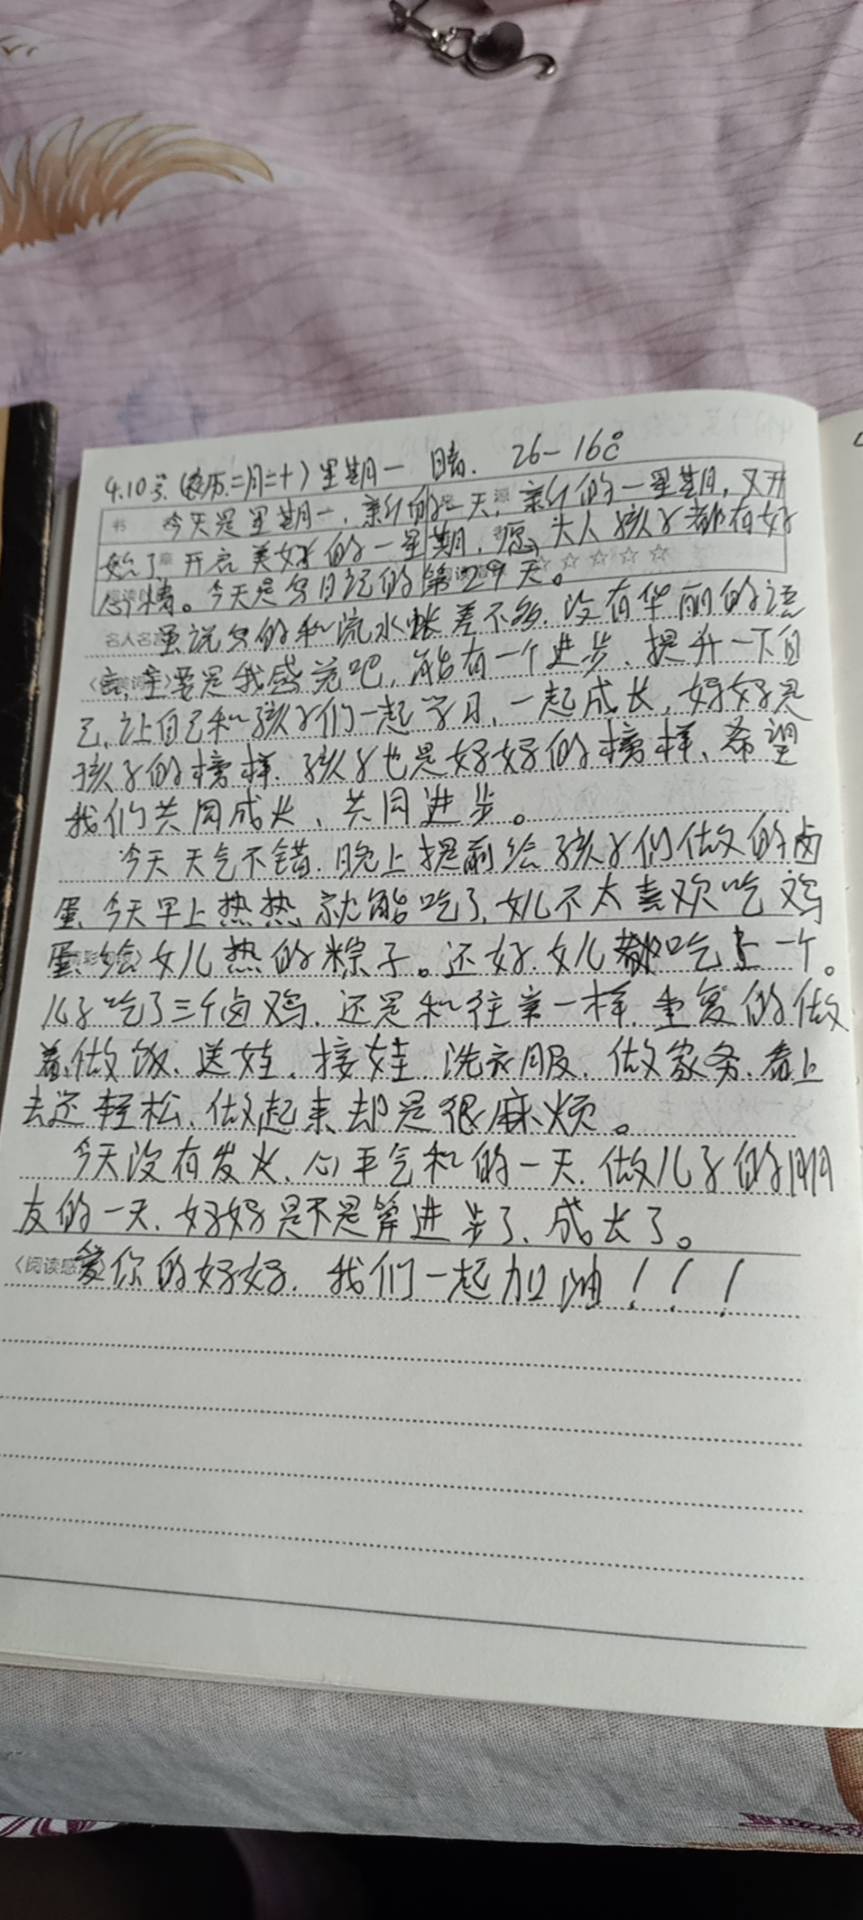 4.10号.(农历二月二十)星期一 晴. 26-16℃
今天是星期一,新的一天,新的一星期,又开
始了.开启美好的一星期,愿大人孩子都有好
心情。今天是写日记的第29天。
虽说写的和流水帐差不多.没有华丽的语
言,主要是我感觉吧,能有一个进步、提升一下自
己,让自己和孩子们一起学习,一起成长,好好是
孩子的榜样.孩子也是好好的榜样、希望
我们共同成长、共同进步。
今天天气不错.晚上提前给孩子们做的卤
蛋,今天早上热热,就能吃了,女儿不太喜欢吃鸡
蛋,给女儿热的粽子。还好.女儿都吃上一个。
儿子吃了三个卤鸡.还是和往常一样.重复的做
着,做饭、送娃、接娃.洗衣服.做家务.看上
去还轻松、做起来却是很麻烦。
今天没有发火、心平气和的一天.做儿子的朋
友的一天.好好是不是算进步了、成长了。
〈阅读感
爱你的好好.我们一起加油!!!